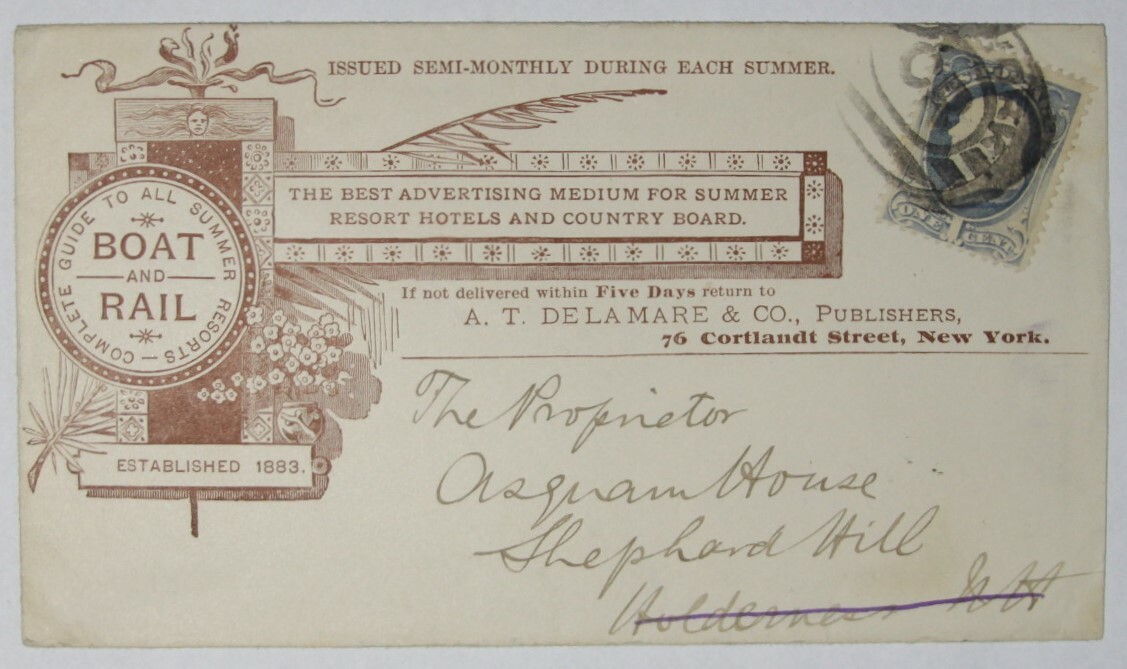 ISSUED SEMI-MONTHLY DURING EACH SUMMER.
THE BEST ADVERTISING MEDIUM FOR SUMMER
RESORT HOTELS AND COUNTRY BOARD.
COMPLETE GUIDE TO ALL SUMMER RESORTS —
BOAT
AND
RAIL
ESTABLISHED 1883.
If not delivered within Five Days return to
A. T. DELAMARE & CO., PUBLISHERS,
76 Cortlandt Street, New York.
ONE CENT
The Proprietor
Asquam House
Shephard Hill
Holderness N H